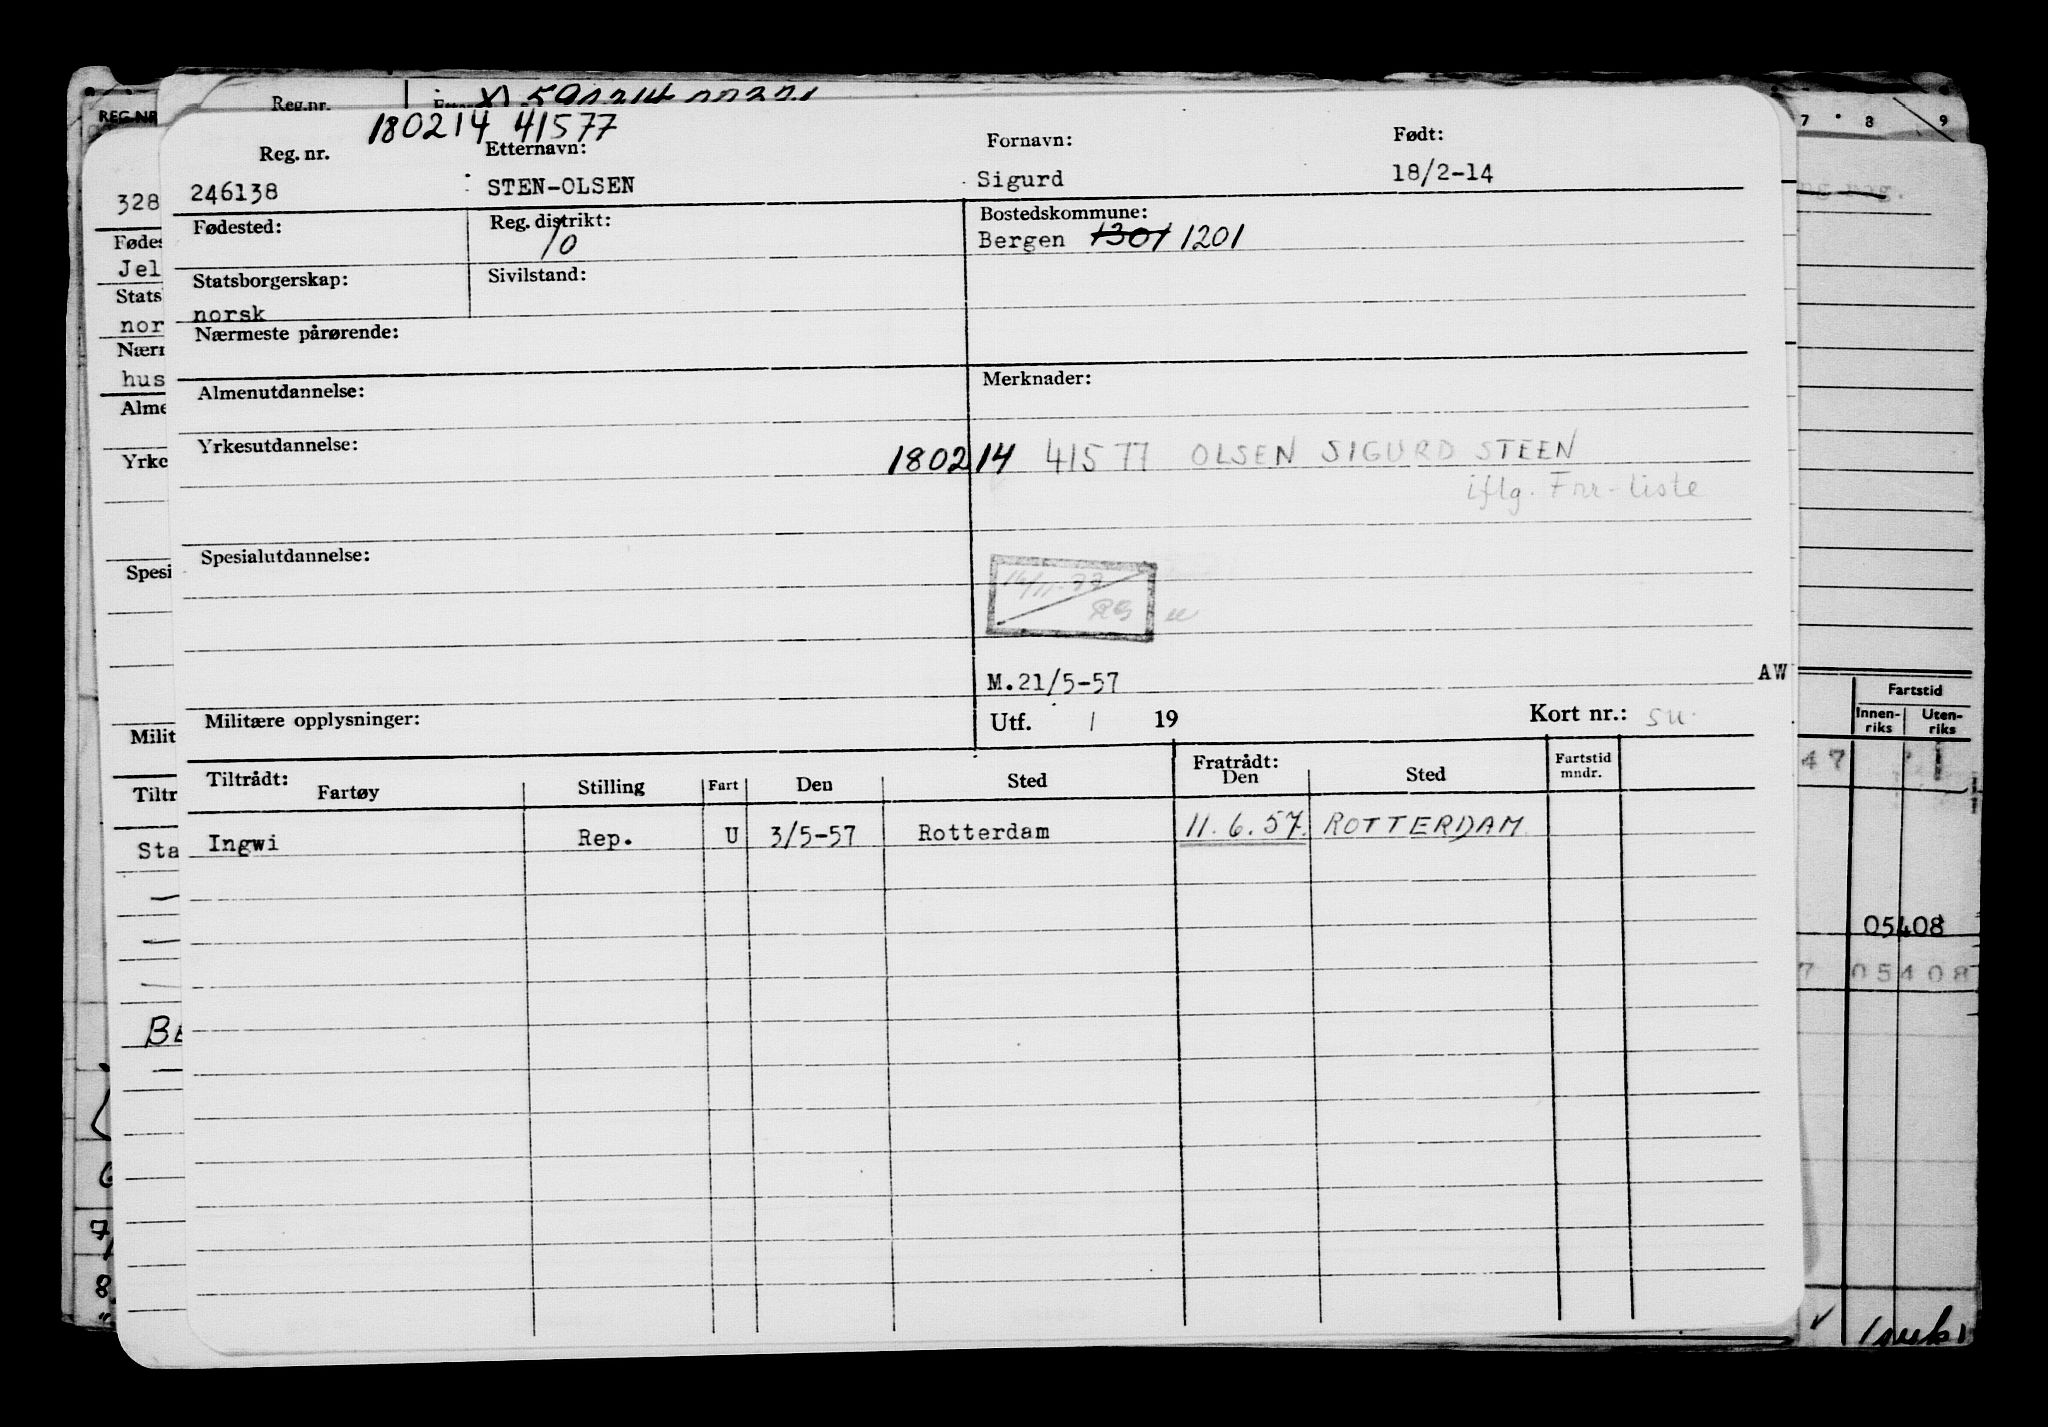 Reg.nr.
REG.NR
7 8 9
180214 41577
Reg. nr. Etternavn: Fornavn: Født:
328 246138 STEN-OLSEN Sigurd 18/2-14
Fødested: Reg. distrikt: 10 Bostedskommune:
Jel Bergen 1301 1201
Statsborgerskap: Sivilstand:
nor norsk
Nærmeste pårørende:
hus
Almenutdannelse: Merknader:
Yrkesutdannelse:
180214 41577 OLSEN SIGURD STEEN
iflg. Fnr-liste
Spesialutdannelse:
RB
M.21/5-57 AW
Militære opplysninger: Utf. / 19 Kort nr.: SU.
Fartstid
Innen-riks Uten-riks
47 1
Tiltrådt: Fratrådt:
Fartøy Stilling Fart Den Sted Den Sted Fartstid mndr.
Sta Ingwi Rep. U 3/5-57 Rotterdam 11.6.57. ROTTERDAM
05408
7 05408
6
7
8